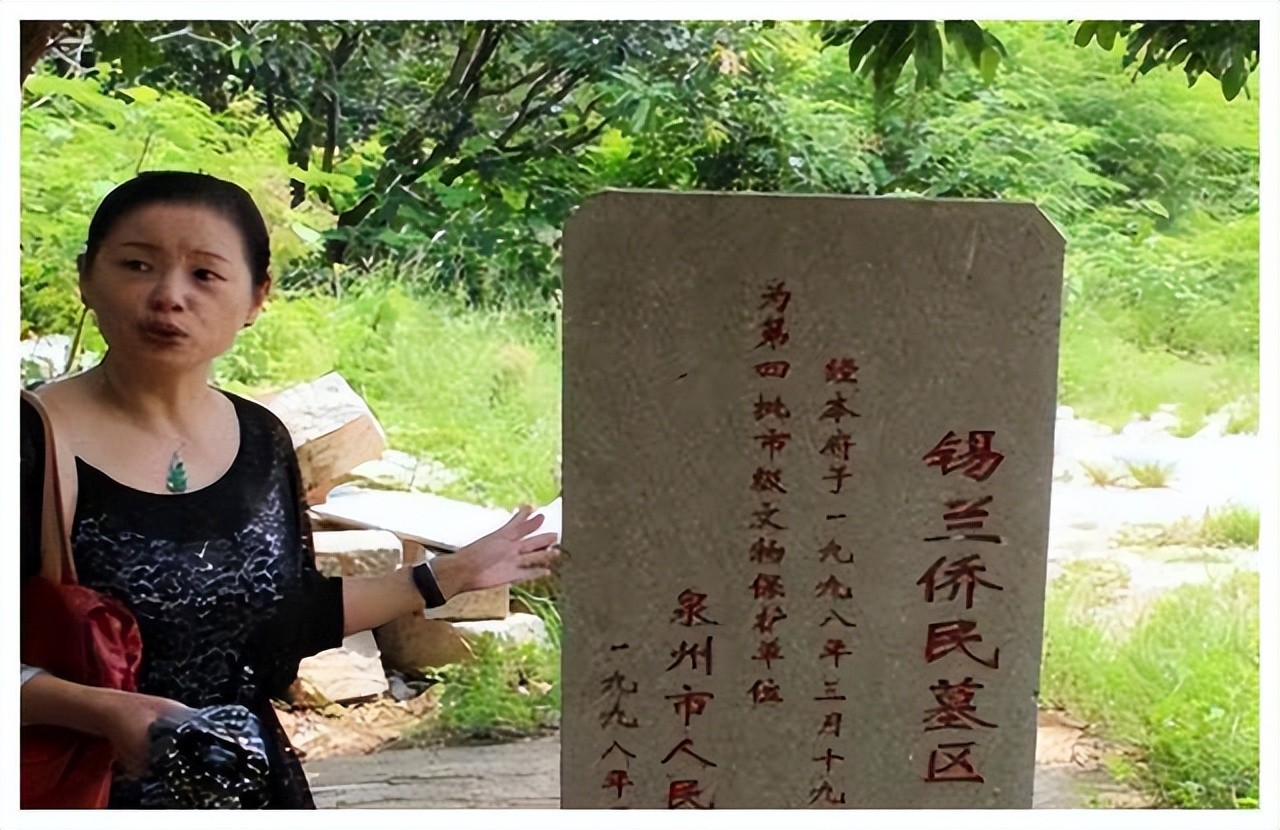 锡兰侨民墓区
经本府于一九九八年三月十九
为第四批市级文物保护单位
泉州市人民
一九九八年